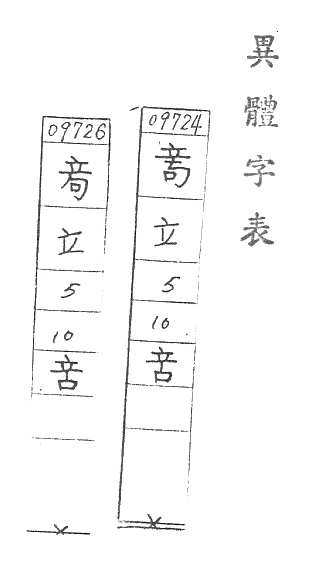 異體字表
09724
立
5
10
09726
立
5
10